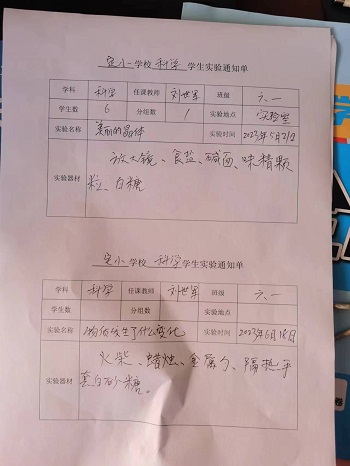 宝小学校 科学 学生实验通知单
学科 科学 任课教师 刘世军 班级 六.一
学生数 6 分组数 1 实验地点 实验室
实验名称 美丽的晶体 实验时间 2023年5月21日
放大镜、食盐、碱面、味精颗
实验器材
粒、白糖
宝小学校 科学 学生实验通知单
学科 科学 任课教师 刘世军 班级 六.一
学生数 分组数 实验地点
实验名称 物质发生了什么变化 实验时间 2023年6月18日
火柴、蜡烛、金属勺、隔热手
实验器材
套白砂糖。